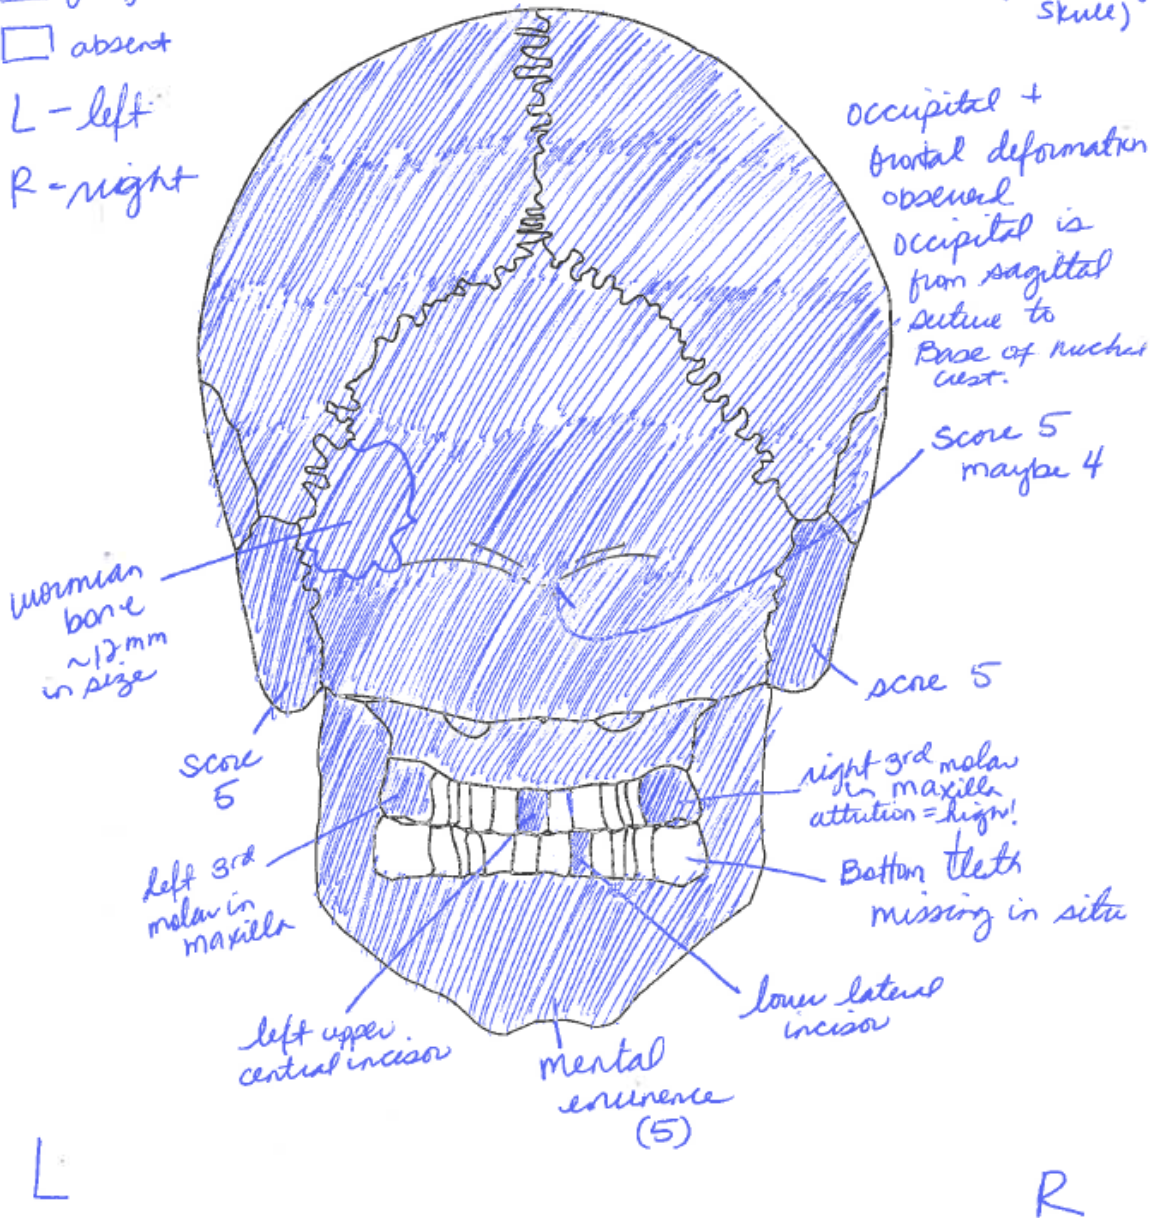 skull)
absent
L - left
R - right
Occipital +
frontal deformation
observed
Occipital is
from sagittal
suture to
Base of nuchal
crest.
Score 5
maybe 4
wormian
bone
~12mm
in size
score 5
Score
5
right 3rd molar
in maxilla
attrition = high!
left 3rd
molar in
maxilla
Bottom teeth
missing in situ
lower lateral
incisor
left upper
central incisor
mental
eminence
(5)
L
R